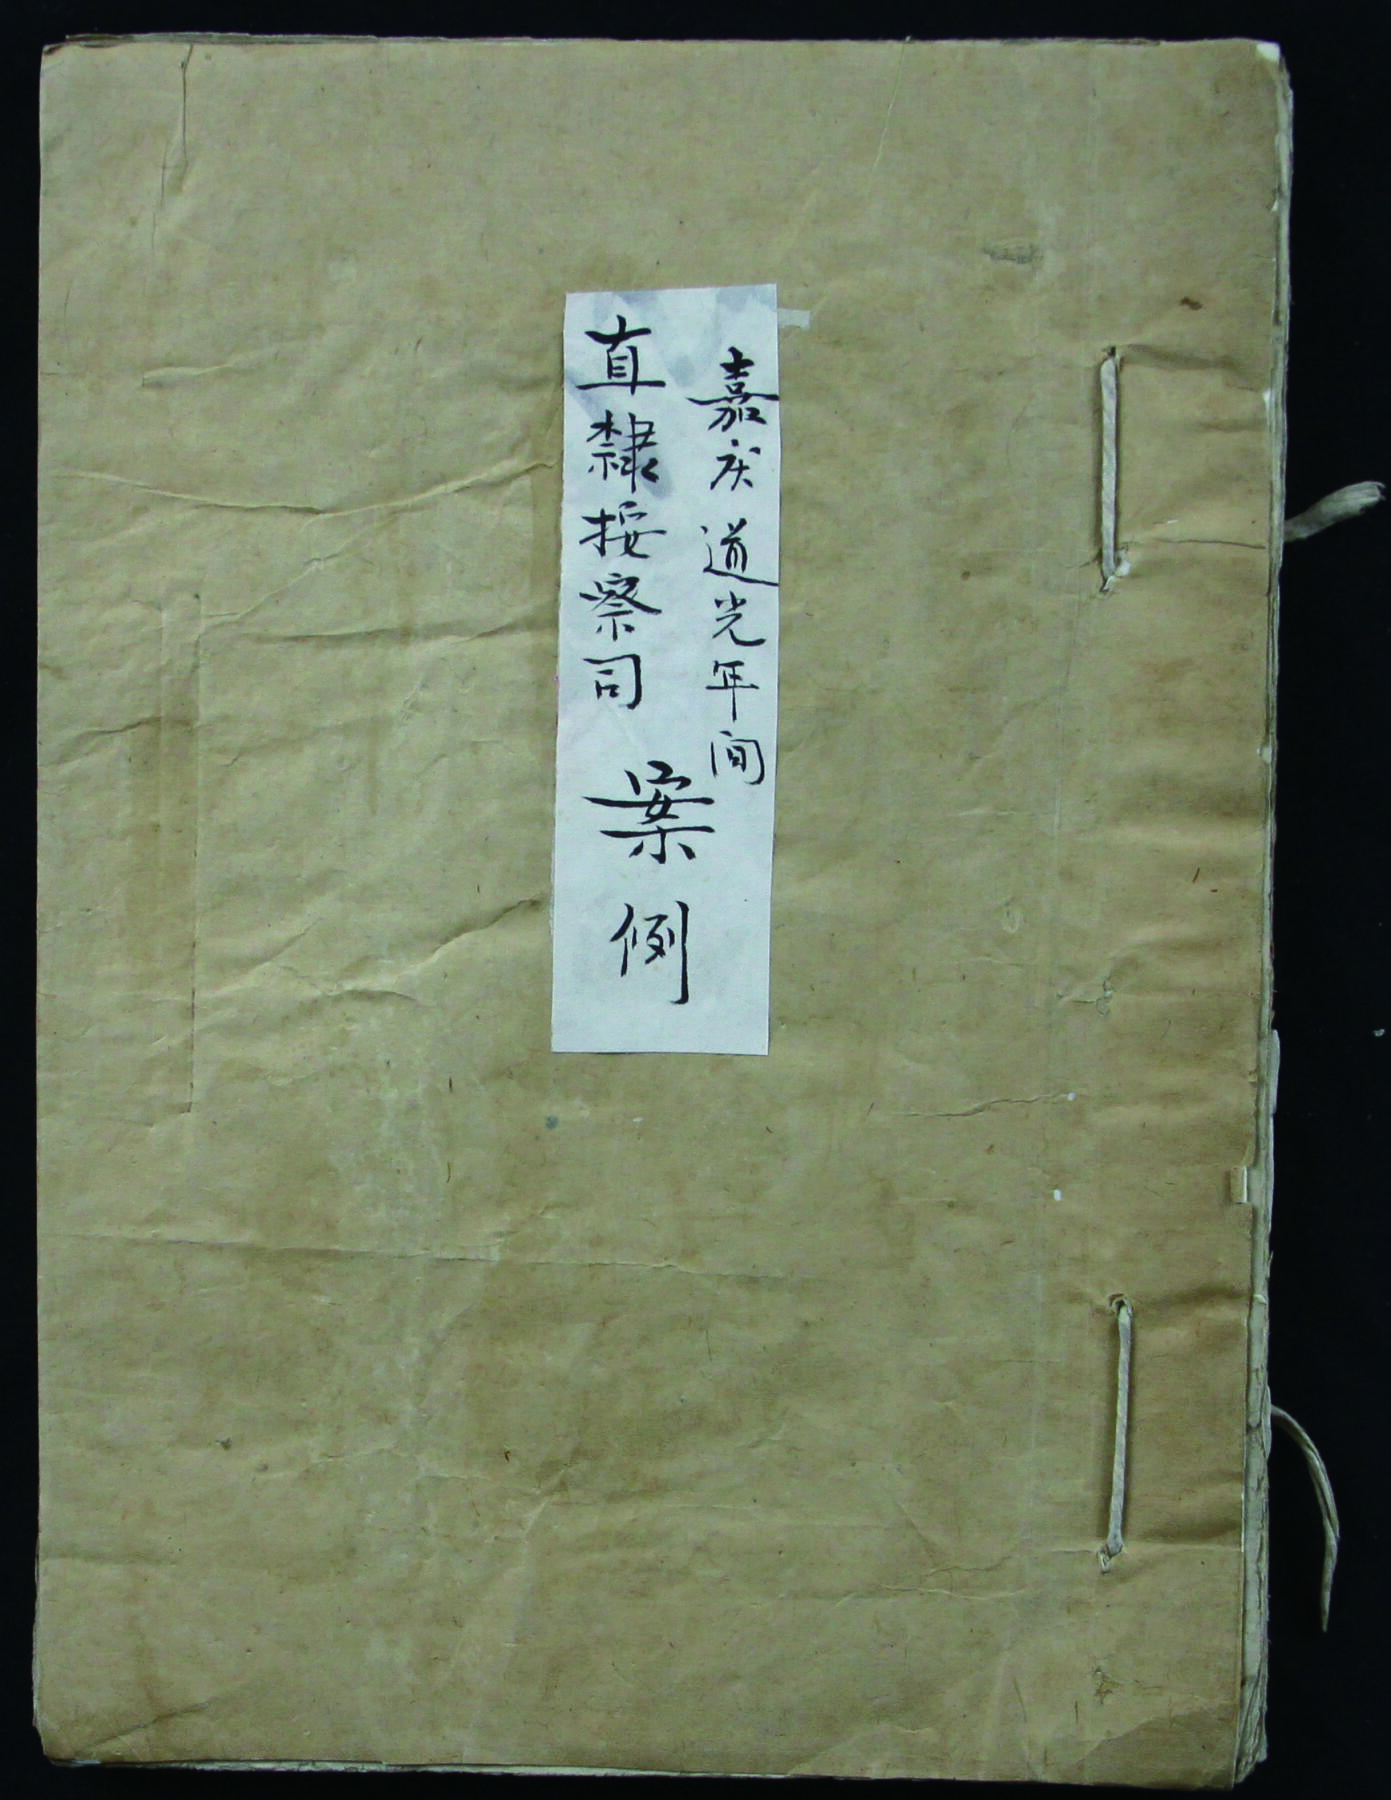 嘉庆道光年间
直隸按察司
案例